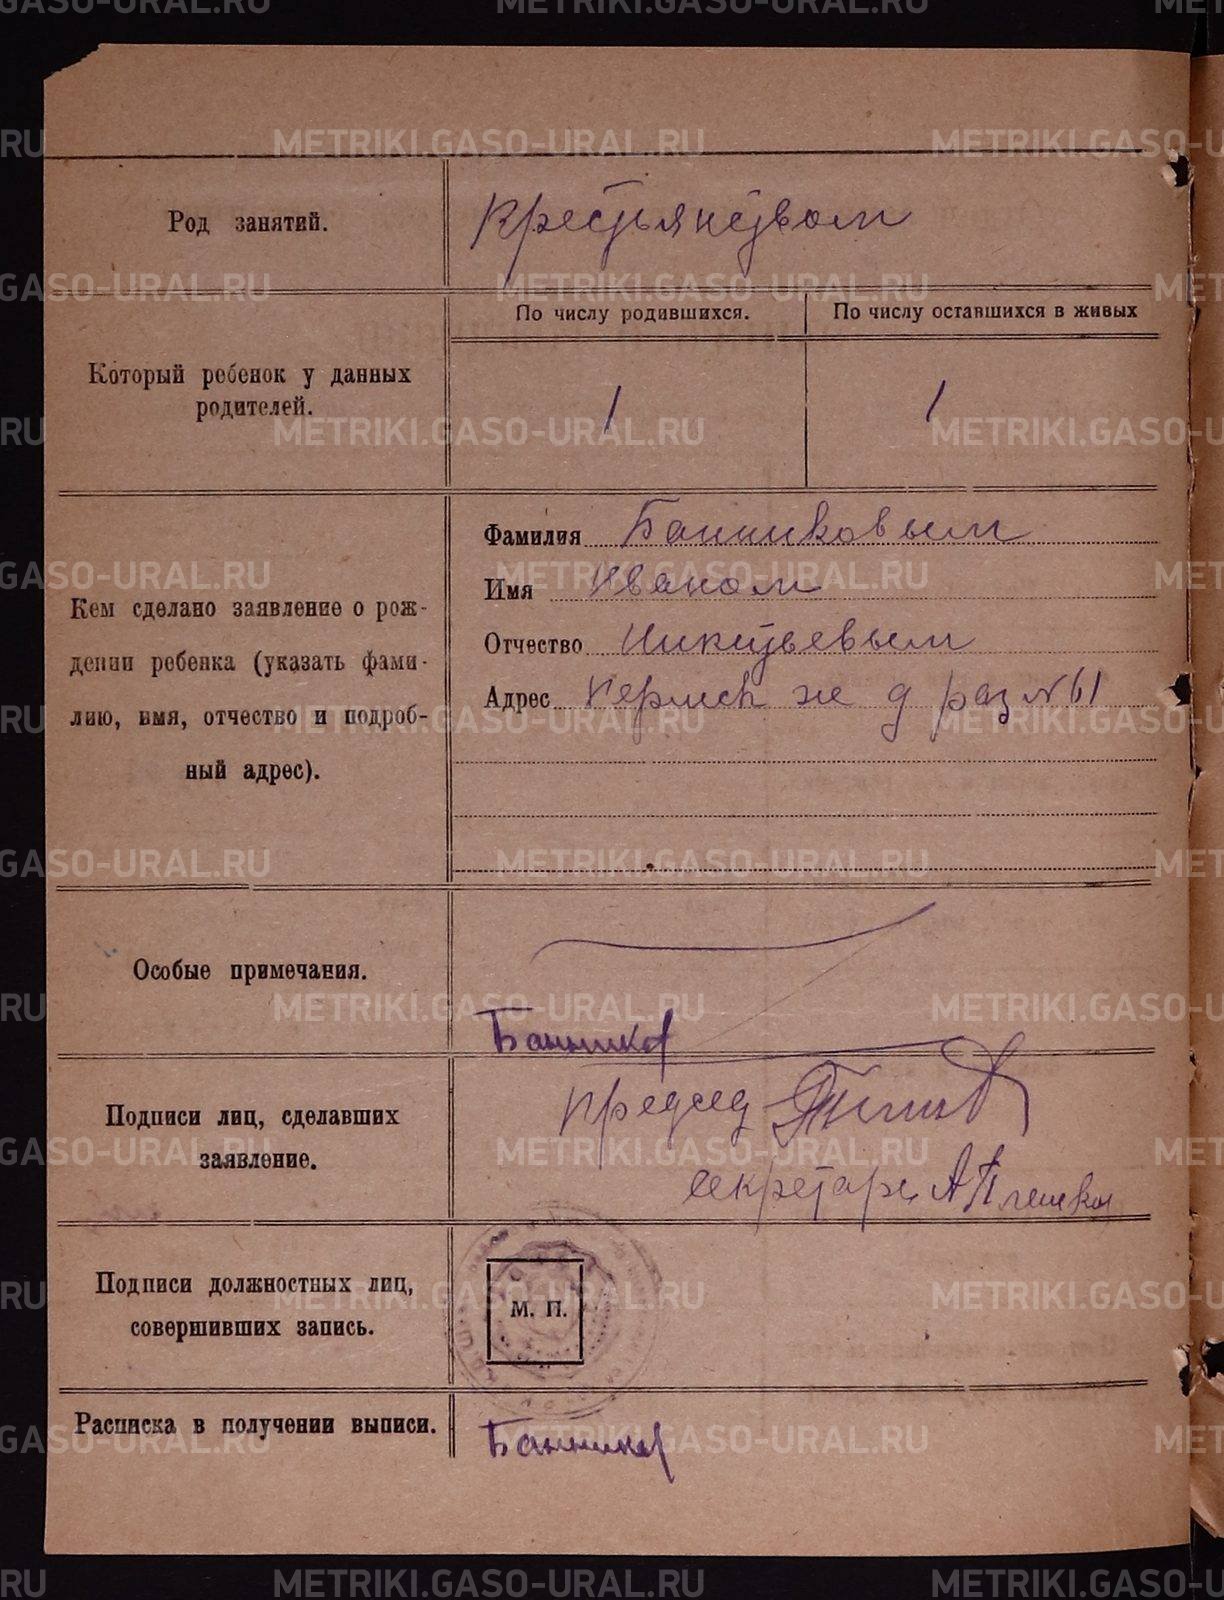 Род занятий.
крестьянством
Который ребенок у данных
родителей.
По числу родившихся.
По числу оставшихся в живых
1
1
Кем сделано заявление о рож-
дении ребенка (указать фами-
лию, имя, отчество и подроб-
ный адрес).
Фамилия Банниковым
Имя Иваном
Отчество
Адрес раз №61
Особые примечания.
Банников
Подписи лиц, сделавших
заявление.
председ
секретарь
Подписи должностных лиц,
совершивших запись.
М. П.
Расписка в получении выписи.
Банников
METRIKI.GASO-URAL.RU